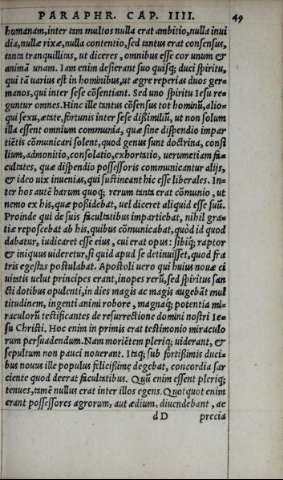 PARAPHR. CAP. IIII. 49
homanam, inter tam multos nulla erat ambitio, nulla inui
dia, nullæ rixæ, nulla contentio, sed tantus erat consensus,
tanta tranquillitas, ut diceres, omnibus esse cor unum &
animã unam. Iam enim desierant suo quisq; duci spiritu,
qui tã uarius est in hominibus, ut ægre reperias duos ger=
manos, qui inter sese cõsentiant. Sed uno spiritu Iesu re=
guntur omnes. Hinc ille tantus cõsensus tot hominũ, alio=
qui sexu, ætate, fortunis inter sese dissimiliũ, ut non solum
illa essent omnium communia, quæ sine dispendio impar
tiêtis cõmunicari solent, quod genus sunt doctrina, consi
lium, admonitio, consolatio, exhortatio, uerumetiam fa=
cultates, quæ dispendio possessoris communicantur alijs,
& ideo uix inuenias, qui sustineant hic esse liberales. In=
ter hos autẽ harum quoq; rerum tanta erat cõmunio, ut
nemo ex his, quæ possidebat, uel diceret aliquid esse suũ.
Proinde qui de suis facultatibus impartiebat, nihil gra=
tiæ reposcebat ab his, quibus cõmunicabat, quòd id quod
dabatur, iudicaret esse eius, cui erat opus: sibiq; raptor
& iniquus uideretur, si quid apud se detinuisset, quod fra
tris egestas postulabat. Apostoli uero qui huius nouæ ci
uitatis uelut principes erant, inopes rerũ, sed spiritus san
cti dotibus opulenti, in dies magis ac magis augebãt mul
titudinem, ingenti animi robore, magnaq; potentia mi=
raculorũ testificantes de resurrectione domini nostri Ie=
su Christi. Hoc enim in primis erat testimonio miraculo
rum persuadendum. Nam moriẽtem pleriq; uiderant, &
sepultum non pauci nouerant. Itaq; sub fortissimis duci=
bus nouus ille populus filicissime degebat, concordia sar
ciente quod deerat facultatibus. Quũ enim essent pleriq;
tenues, tamẽ nullus erat inter illos egens. Quotquot enim
erant possessores agrorum, aut ædium, diuendebant, ac
d D precia